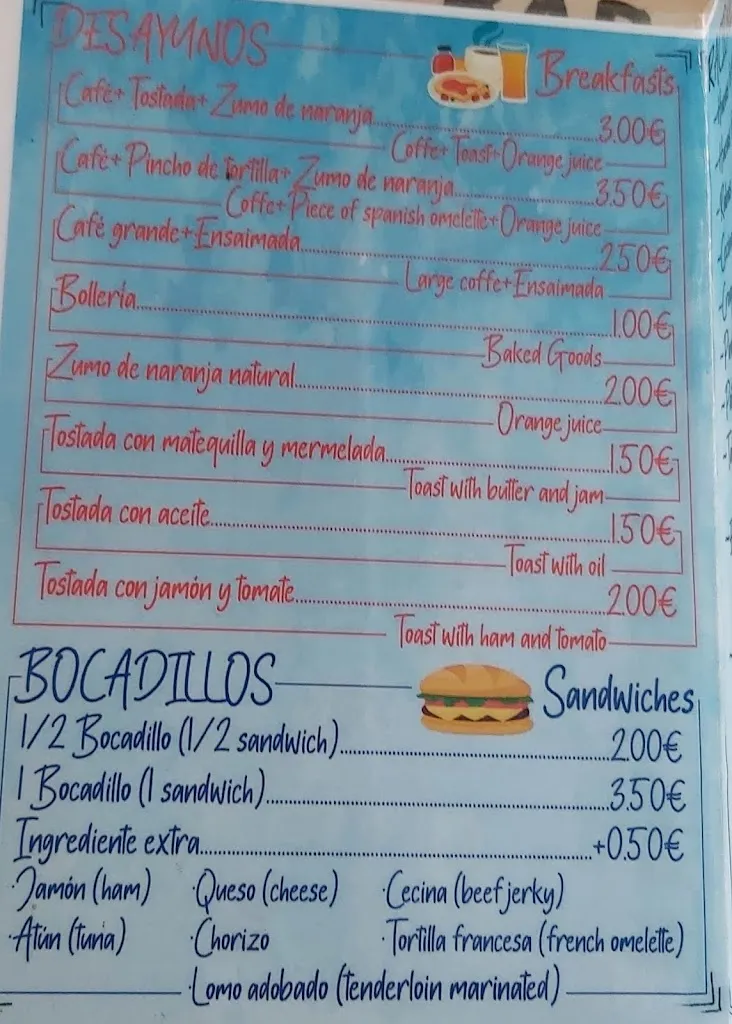 DESAYUNOS Breakfasts
Café+ Tostada+ Zumo de naranja 3.00€
Coffe+ Toast+Orange juice
Café+ Pincho de tortilla+ Zumo de naranja 3.50€
Coffe+Piece of spanish omelette+Orange juice
Café grande+Ensaimada 2.50€
Large coffe+Ensaimada
Bollería 1.00€
Baked Goods
Zumo de naranja natural 2.00€
Orange juice
Tostada con matequilla y mermelada 1.50€
Toast with butter and jam
Tostada con aceite 1.50€
Toast with oil
Tostada con jamón y tomate 2.00€
Toast with ham and tomato
BOCADILLOS Sandwiches
1/2 Bocadillo (1/2 sandwich) 2.00€
1 Bocadillo (1 sandwich) 3.50€
Ingrediente extra +0.50€
·Jamón (ham) ·Queso (cheese) ·Cecina (beef jerky)
·Atún (tuna) ·Chorizo ·Tortilla francesa (french omelette)
·Lomo adobado (tenderloin marinated)